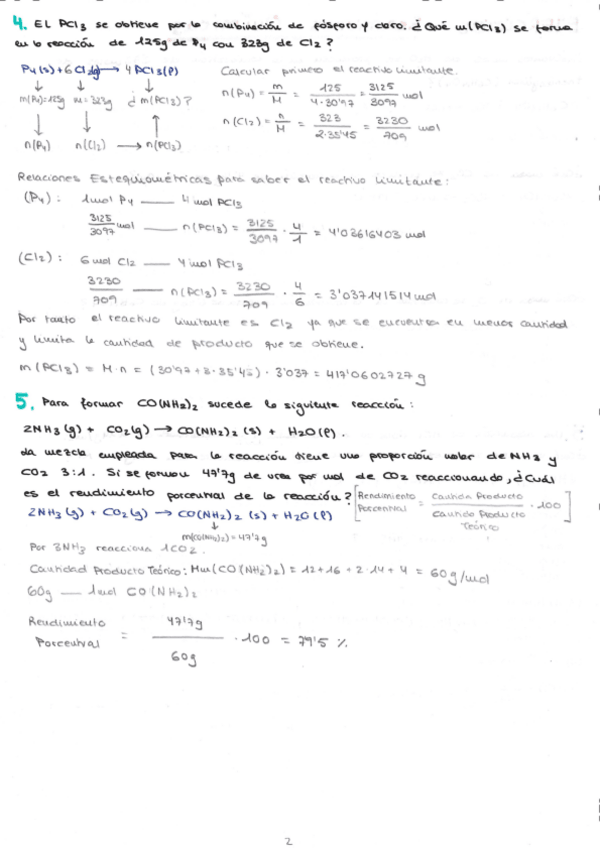 4. El PCl3 se obtiene por la combinación de fósforo y cloro. ¿Qué m(PCl3) se forma
en la reacción de 125g de P4 con 323g de Cl2?
P4(s)+6Cl2(g)→4PCl3(l) Calcular primero el reactivo limitante.
m(P4)=125g m=323g ¿m(PCl3)?
n(P4) = m/M = 125/4·30'97 = 3125/3097 mol
n(Cl2) = m/M = 323/2·35'45 = 3230/709 mol
n(P4) n(Cl2) → n(PCl3)
Relaciones Estequiométricas para saber el reactivo limitante:
(P4): 1mol P4 — 4 mol PCl3
3125/3097 mol — n(PCl3) = 3125/3097 · 4/1 = 4'03616403 mol
(Cl2): 6mol Cl2 — 4mol PCl3
3230/709 — n(PCl3) = 3230/709 · 4/6 = 3'037141514 mol
Por tanto el reactivo limitante es Cl2 ya que se encuentra en menor cantidad
y limita la cantidad de producto que se obtiene.
m(PCl3) = M·n = (30'97+3·35'45)·3'037 = 417'0602727 g
5. Para formar CO(NH2)2 sucede la siguiente reacción:
2NH3(g) + CO2(g) → CO(NH2)2(s) + H2O(l).
La mezcla empleada para la reacción tiene una proporción molar de NH3 y
CO2 3:1. Si se forman 47'7g de urea por mol de CO2 reaccionando, ¿Cuál
es el rendimiento porcentual de la reacción? [Rendimiento Porcentual = Cantidad Producto/Cantidad Producto Teórico · 100]
2NH3(g) + CO2(g) → CO(NH2)2(s) + H2O(l)
m(CO(NH2)2) = 47'7g
Por 3NH3 reacciona 1CO2.
Cantidad Producto Teórico: Mm(CO(NH2)2) = 12+16+2·14+4 = 60g/mol
60g — 1mol CO(NH2)2
Rendimiento Porcentual = 47'7g/60g · 100 = 79'5 %
2